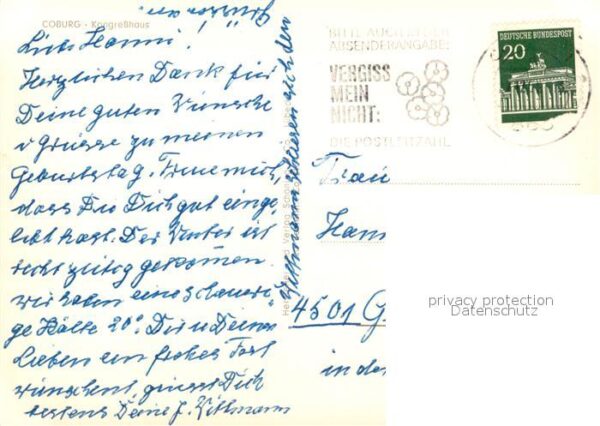 COBURG - Kongreßhaus
Liebe Hanni!
Herzlichen Dank für
Deine guten Wünsche
u Grüsse zu meinem
Geburtstag. Freue mich,
dass Du Dich gut einge-
lebt hast. Der Winter ist
recht zeitig gekommen.
wir haben eine schaueri-
ge Kälte 20°. Dir u Deinen
Lieben ein frohes Fest
wünschend, grüsst Dich
bestens Deine J. Kittmann
schliessen sich den
Verlag
BITTE AUCH IN DER
ABSENDERANGABE:
VERGISS
MEIN
NICHT:
DIE POSTLEITZAHL
DEUTSCHE BUNDESPOST
20
Frau
Han
4501 G
in der
privacy protection
Datenschutz